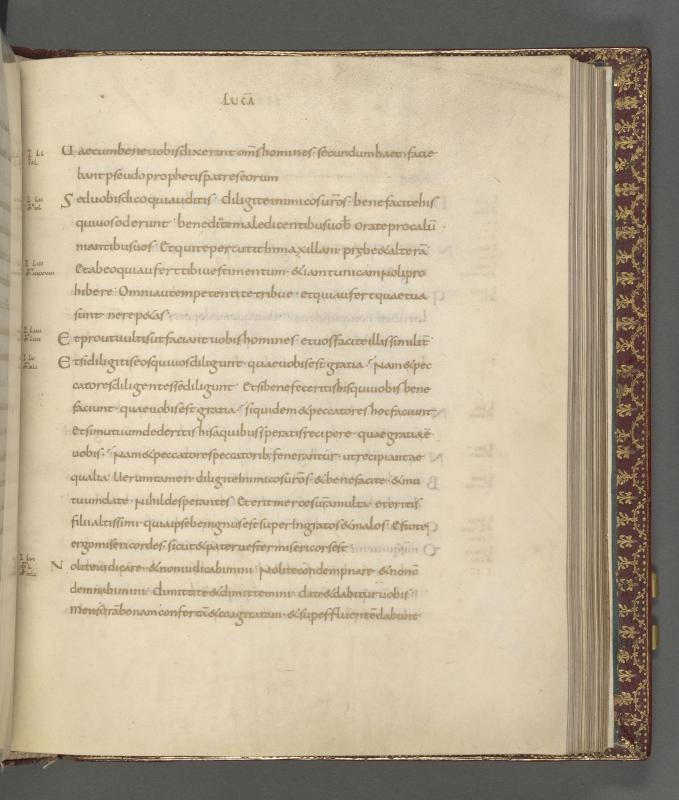 LUCĀ
Uae cum bene uobis dixerint oms̄ homines · secundum haec facie
bant pseudo prophetis patres eorum
Sed uobis dico qui auditis · diligite inimicos ur̄os · bene facite his
qui uos oderunt benedicite maledicentibus uob orate pro calū
niantibus uos · Et qui te percutit In maxillam prȩbe & alterā
Et ab eo qui aufert tibi uestimentum · & iam tunicam Noli pro
hibere · Omni autem petenti te tribue · et qui aufert quae tua
sunt ne repetas ·
Et prout uultis ut faciant uobis homines · et uos facite illis similit̄
Et si diligitis eos qui uos diligunt quae uobis est gratia · Nam & pec
catores diligentes se diligunt · Et si bene feceritis his qui uobis bene
faciunt quae uobis est gratia · siquidem & peccatores hoc faciunt
et si mutuum dederitis his a quibus speratis recipere · quae gratia ē
uobis · Nam & peccatores peccatorib; fenerantur · ut recipiant ae
qualia · Uerum tamen diligite Inimicos ur̄os · & bene facite · & mu
tuum date · Nihil desperantes Et erit merces ur̄a multa · et eritis
filii altissimi · quia ipse benignus est super Ingratos & malos · Estote
ergo misericordes · sicut & pater uester misericors est
Nolite iudicare · & non iudicabimini Nolite condempnare & non cō
demnabimini · dimittite & dimittemini · date & dabitur uobis ·
mensurā bonam confertā & coagitatam · & sup effluentē dabunt